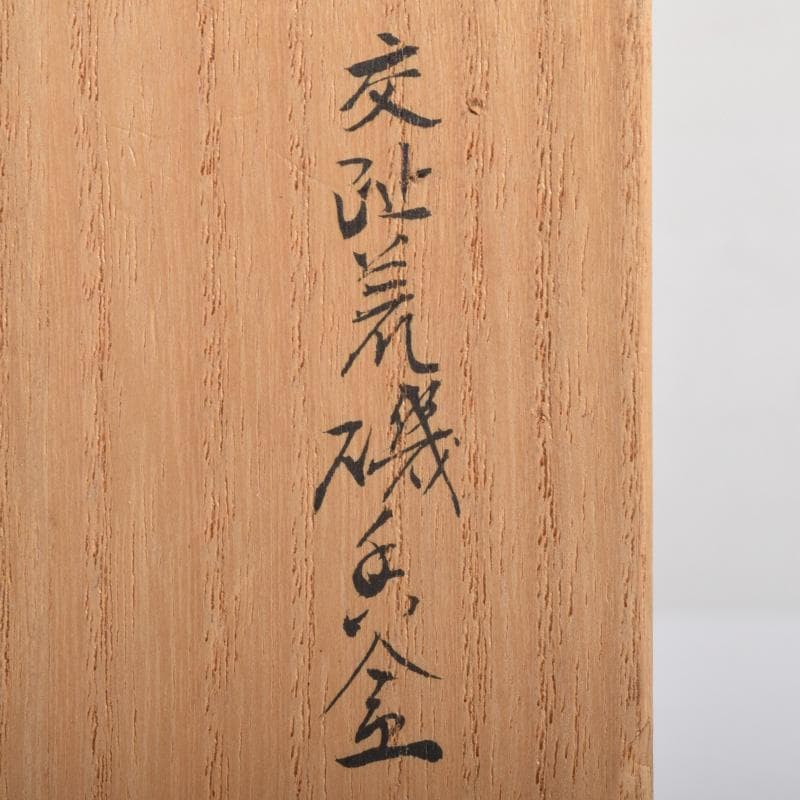 交趾荒磯香合